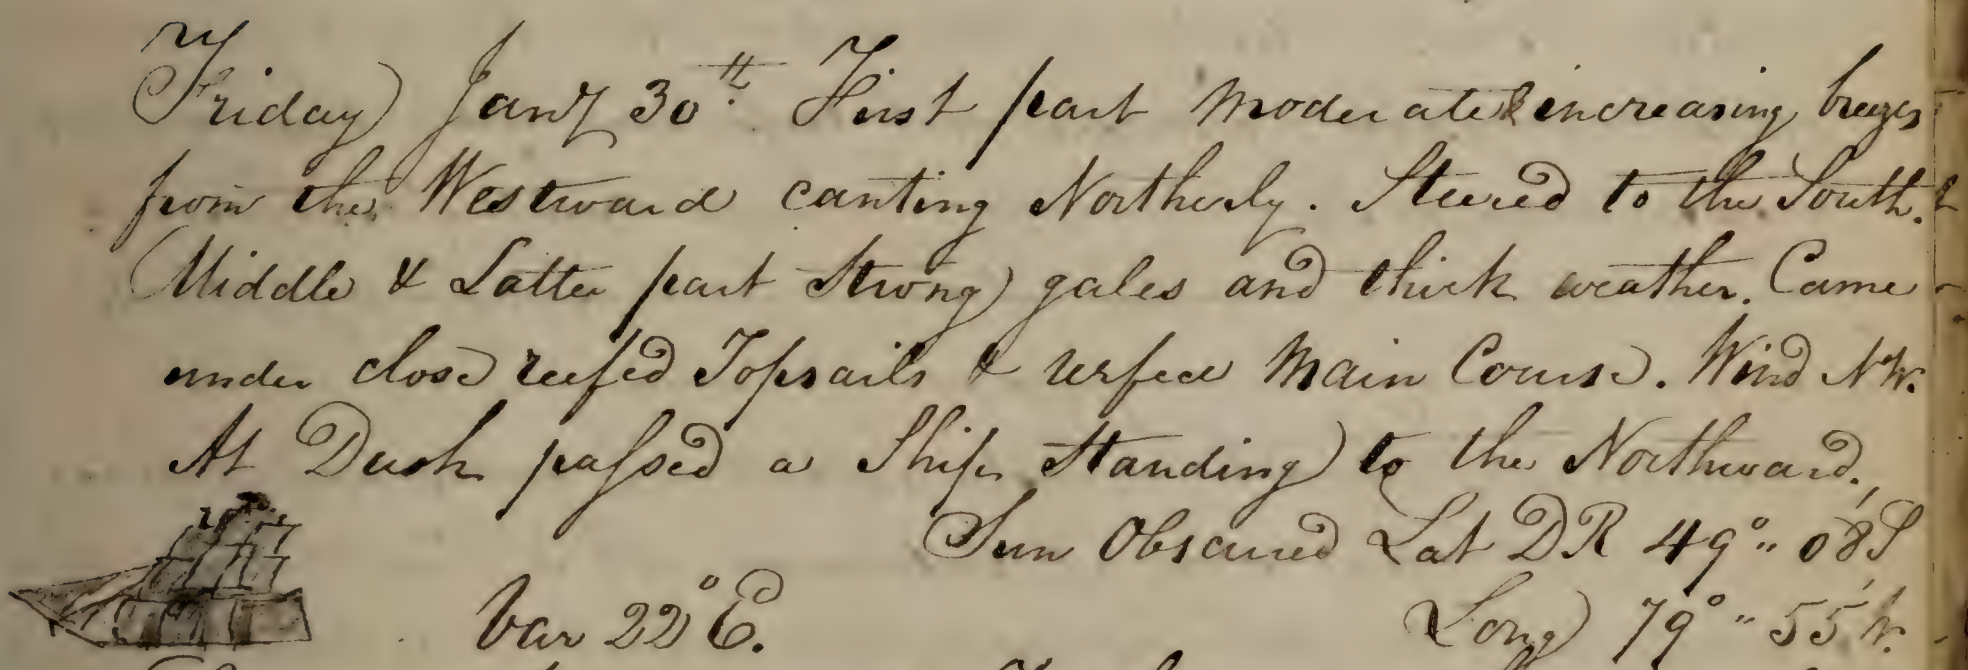 Friday Jany 30th. First part Moderate & increasing breezes
from the Westward canting Northerly. Steered to the South. &
Middle & Latter part Strong gales and thick weather. Came
under close reefed Topsails & reefed Main Course. Wind NW.
At Dusk passed a Ship Standing to the Northward.
Sun Obscured Lat DR 49°" 08' S
Var 22° E. Long 79°" 55' W.